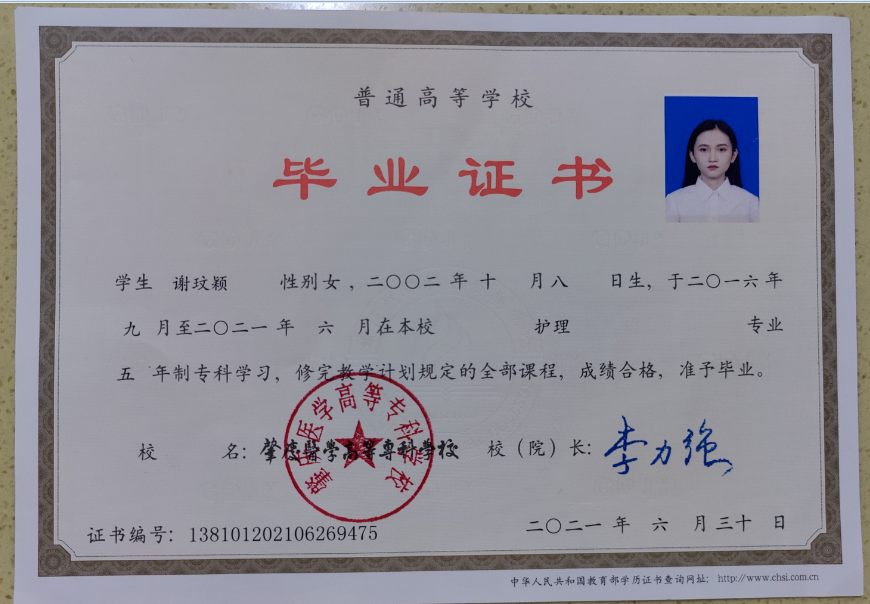 普通高等学校
毕业证书
学生 谢玟颖 性别女，二〇〇二年十月八日生，于二〇一六年
九月至二〇二一年六月在本校 护理 专业
五年制专科学习，修完教学计划规定的全部课程，成绩合格，准予毕业。
校名：肇慶醫學高等專科學校 校（院）长：李力强
肇庆医学高等专科学校
二〇二一年六月三十日
证书编号：138101202106269475
中华人民共和国教育部学历证书查询网址：http://www.chsi.com.cn